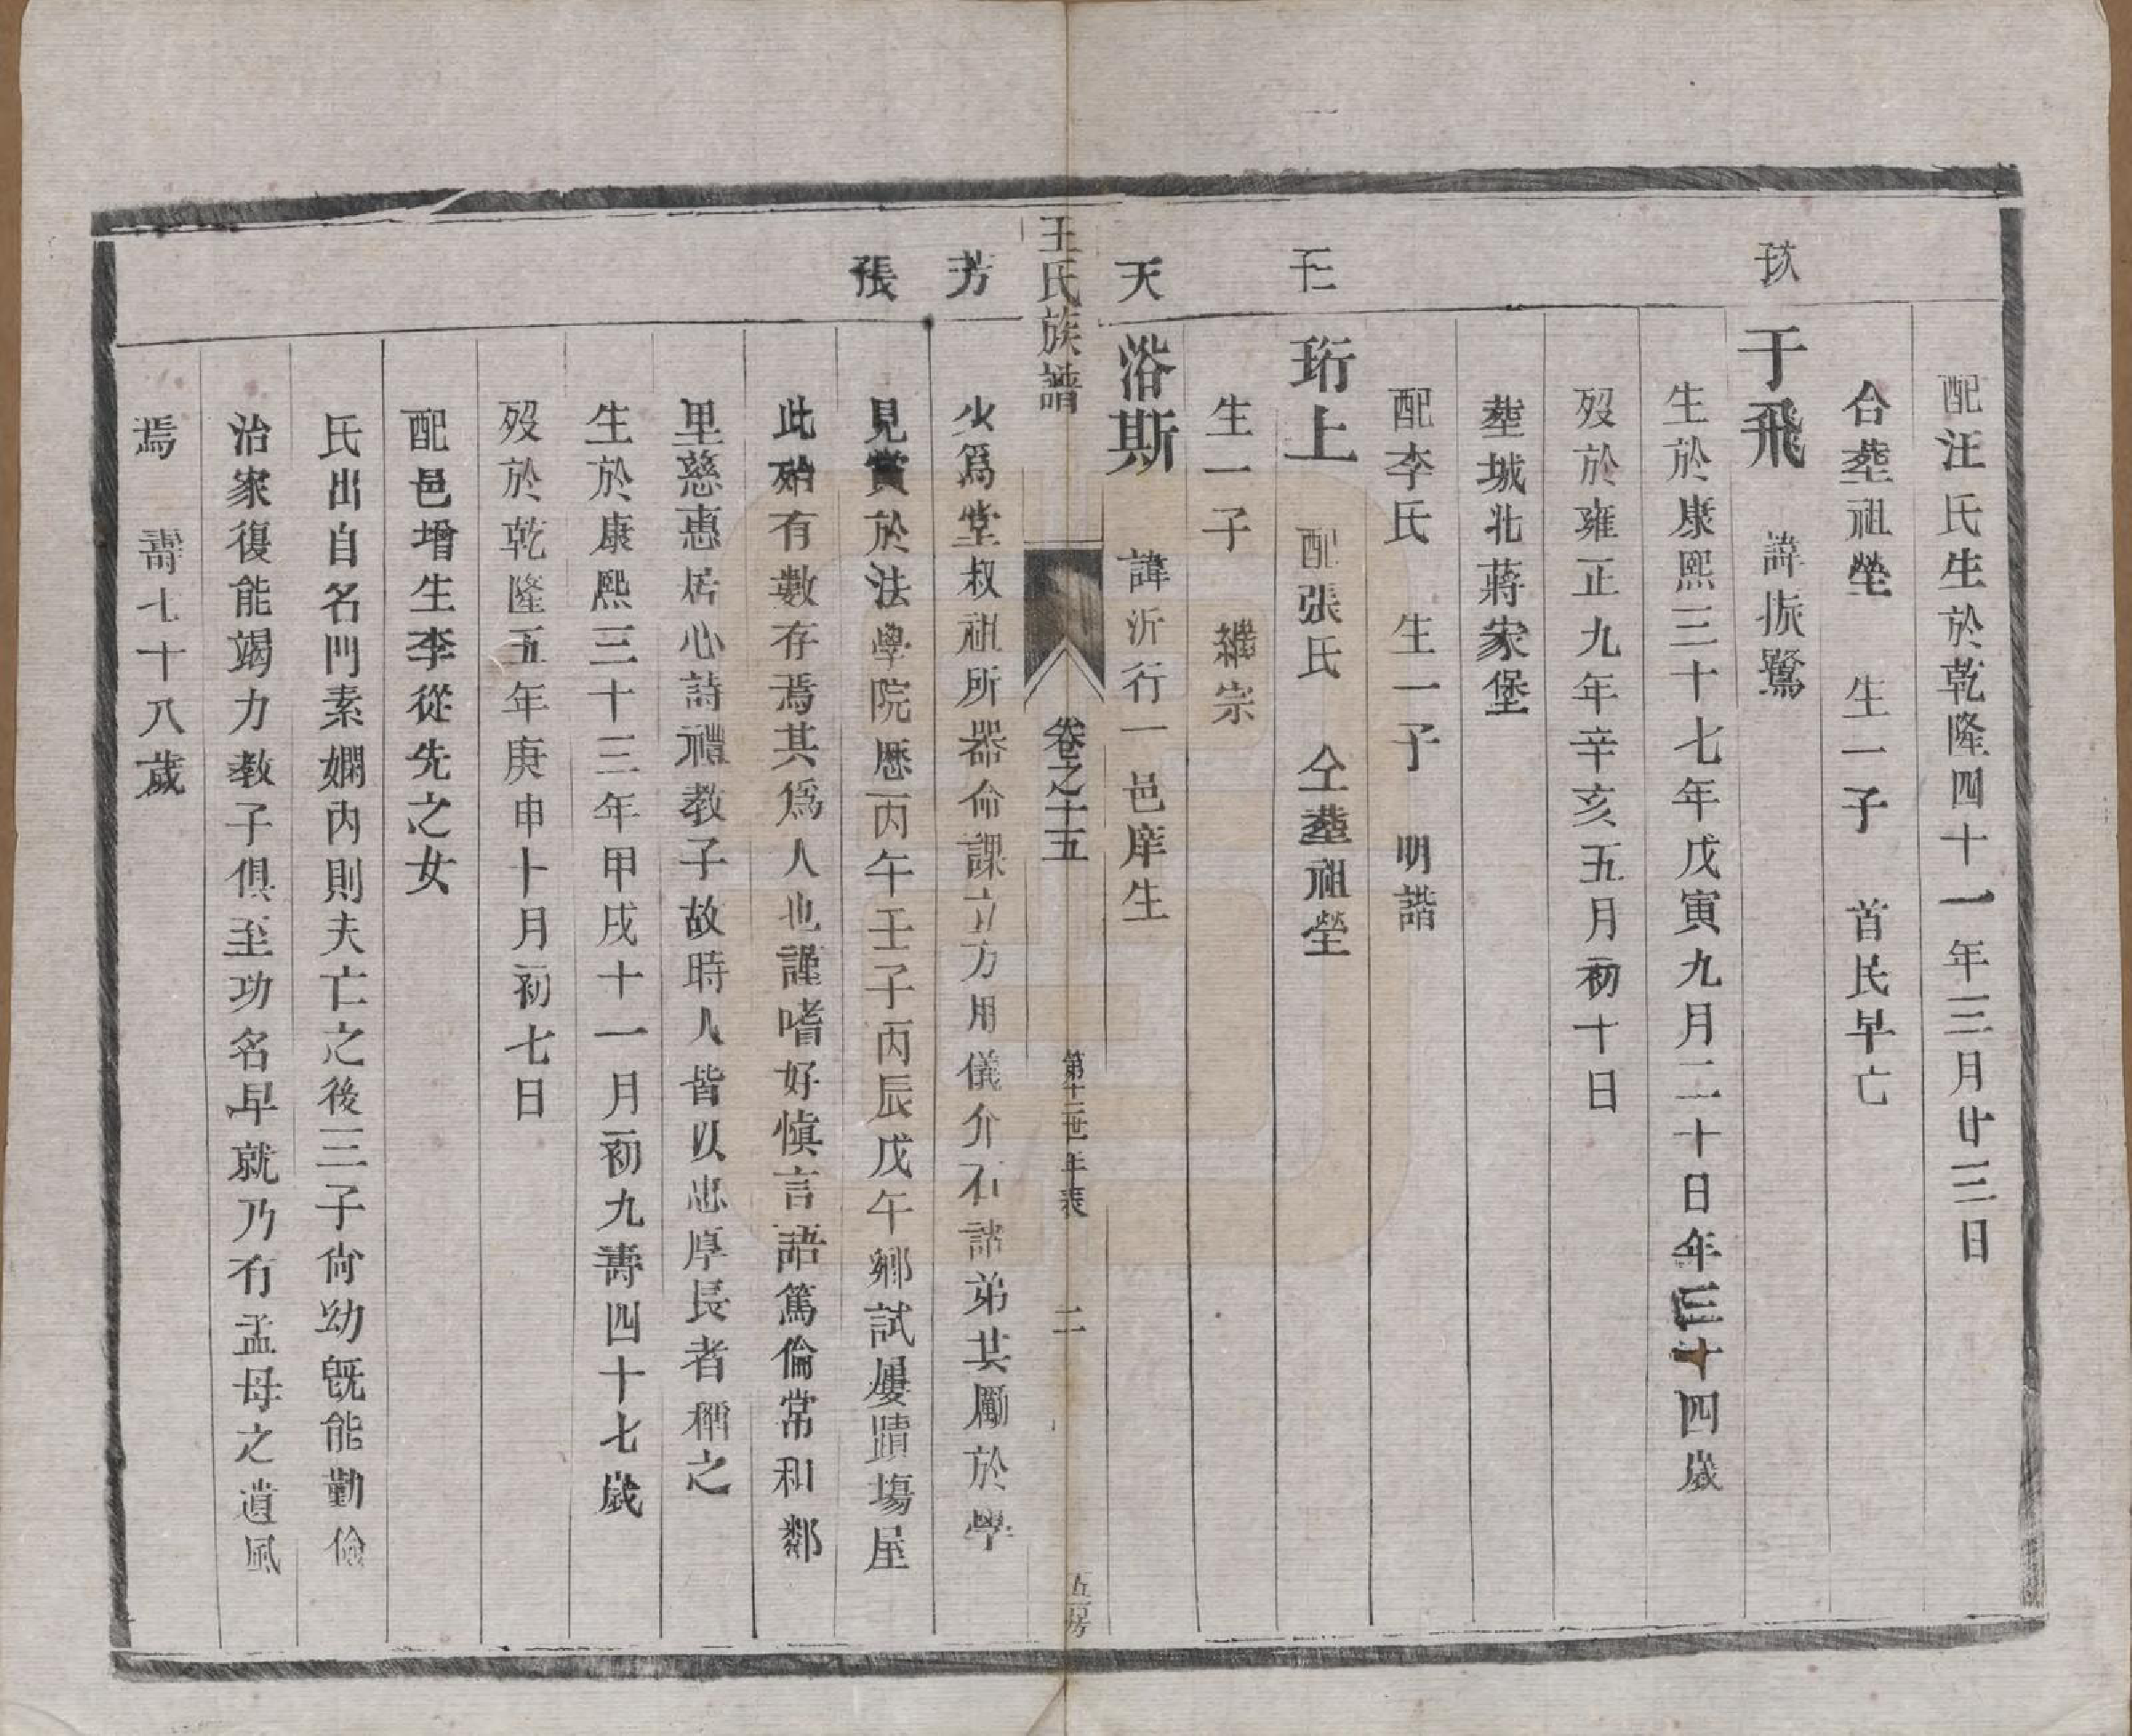 配汪氏生於乾隆四十一年三月廿三日
合塟祖塋 生一子 首民早亡
玹
于飛 諱振鷺
生於康熙三十七年戊寅九月二十日年三十四歲
歿於雍正九年辛亥五月初十日
塟城北蔣家堡
配李氏 生一子 明諧
珩上 配張氏 仝塟祖塋
生一子 繼宗
天
浴斯 諱沂行一邑庠生
王氏族譜 卷之十五 第十二世年表 二 五房
芳
少爲堂叔祖所器命課立方用儀介石諸弟其勵於學
張
見賞於法學院歷丙午壬子丙辰戊午鄉試屢躓塲屋
此殆有數存焉其爲人也謹嗜好愼言語篤倫常和鄰
里慈惠居心詩禮教子故時人皆以忠厚長者稱之
生於康熙三十三年甲戌十一月初九壽四十七歲
歿於乾隆五年庚申十月初七日
配邑增生李從先之女
氏出自名門素嫻内則夫亡之後三子尙幼旣能勤儉
治家復能竭力教子俱至功名早就乃有孟母之遺風
焉 壽七十八歲